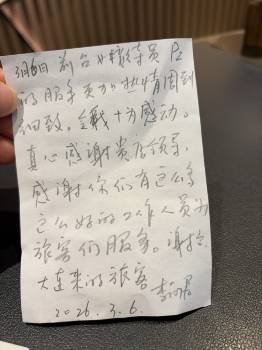 3月6日 前台小楼等员
的服务更加热情周到
细致。我十分感动。
真心感谢贵店领导,
感谢你们有这么多
这么好的工作人员为
旅客们服务。谢谢
大连来的旅客
2026.3.6.